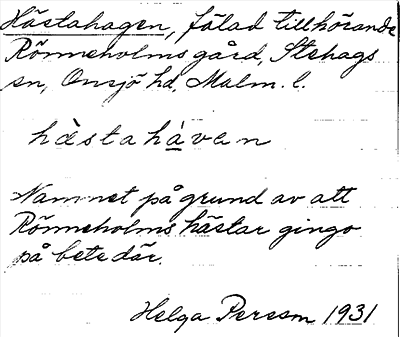 Hästahagen, fälad tillhörande
Rönneholms gård, Stehags
sn, Onsjö hd, Malm. l.
hästahàven
Namnet på grund av att
Rönneholms hästar gingo
på bete där.
Helga Persson 1931